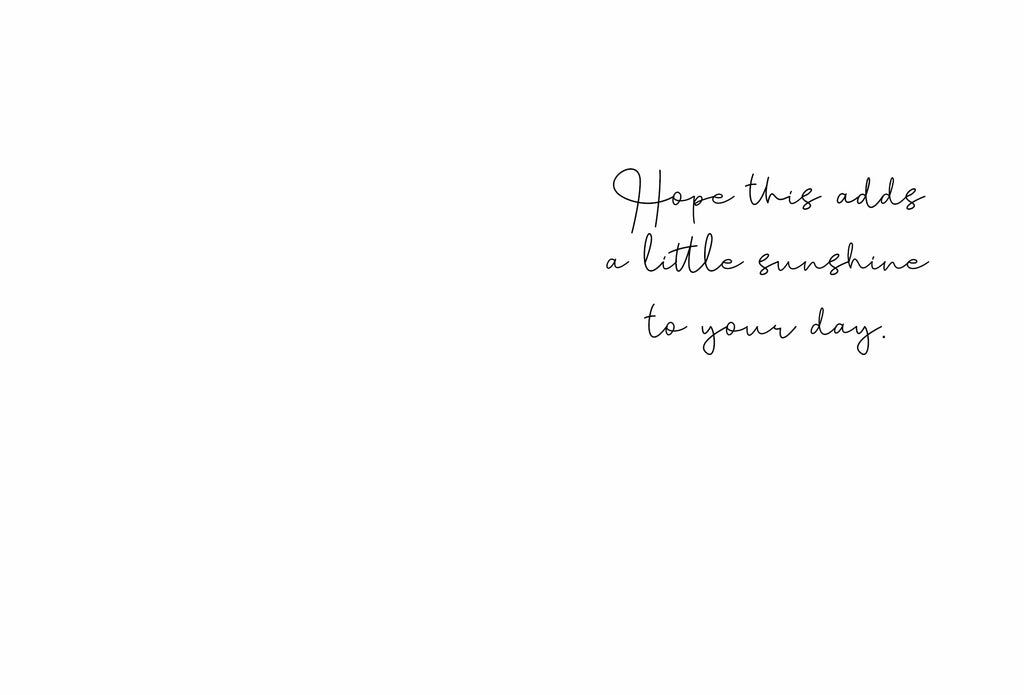 Hope this adds
a little sunshine
to your day.